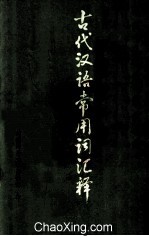 古代汉语常用词汇释
ChaoXing.com